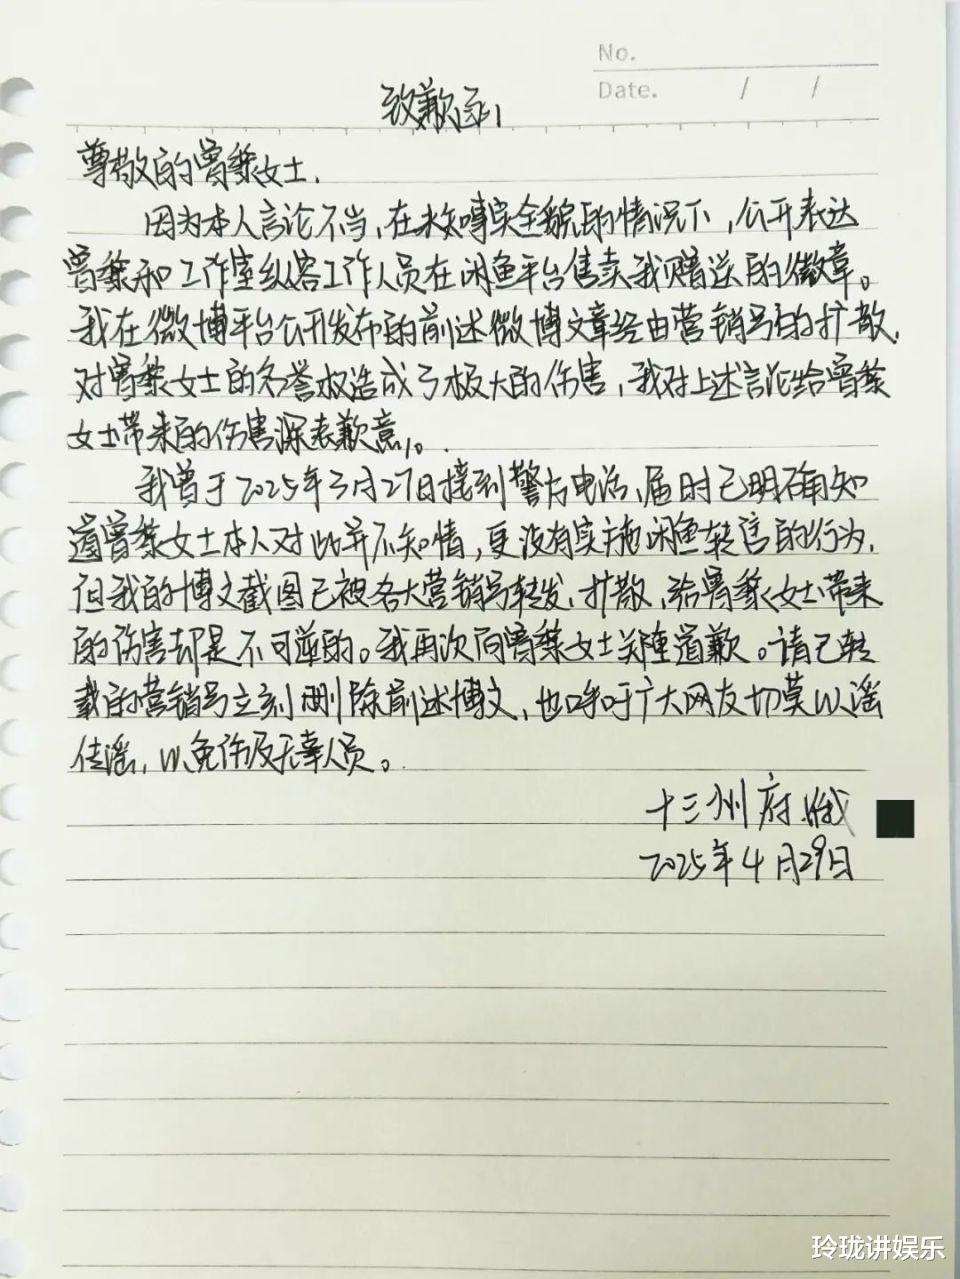 No.
Date. / /
致歉函
尊敬的曾黎女士.
因为本人言论不当,在未知事实全貌的情况下,公开表达
曾黎和工作室纵容工作人员在闲鱼平台售卖我赠送的徽章。
我在微博平台公开发布的前述微博文章经由营销号的扩散,
对曾黎女士的名誉权造成了极大的伤害,我对上述言论给曾黎
女士带来的伤害深表歉意。
我曾于2025年3月27日接到警方电话,届时已明确知
道曾黎女士本人对此并不知情,更没有实施闲鱼转售的行为,
但我的博文截图已被各大营销号转发、扩散,给曾黎女士带来
的伤害却是不可逆的。我再次向曾黎女士郑重道歉。请已转
载的营销号立刻删除前述博文,也呼吁广大网友切莫以谣
传谣,以免伤及无辜人员。
十三州府
2025年4月29日
玲珑讲娱乐